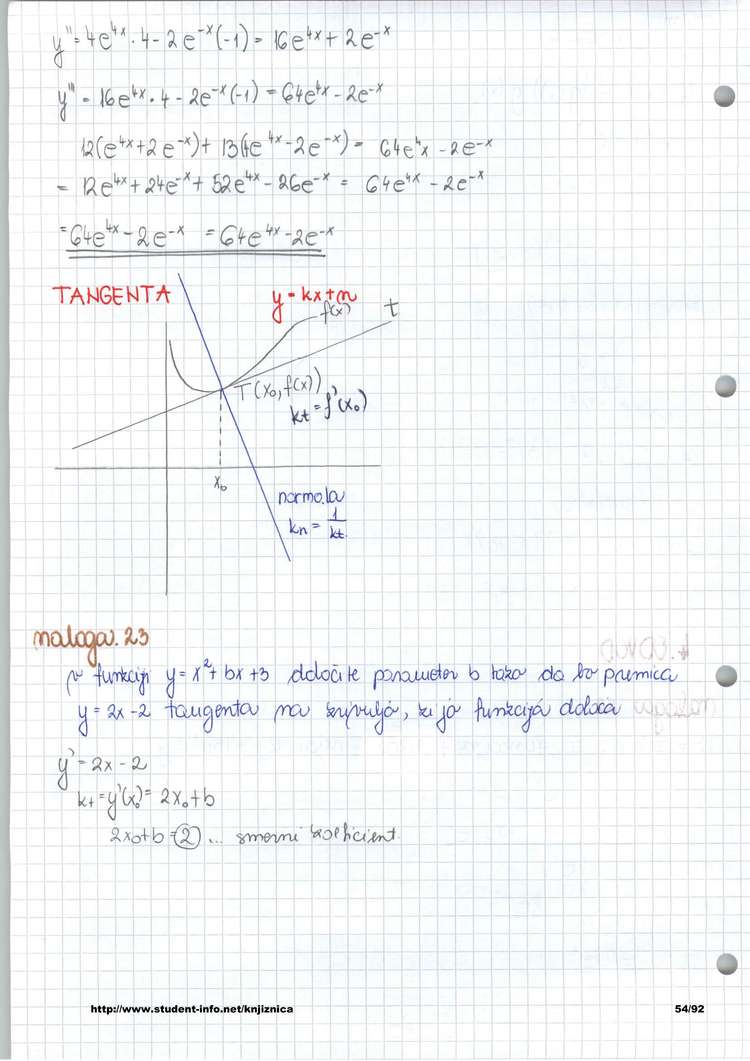 y'' = 4e^4x · 4 - 2e^-x (-1) = 16e^4x + 2e^-x
y''' = 16e^4x · 4 - 2e^-x (-1) = 64e^4x - 2e^-x
12(e^4x + 2e^-x) + 13(4e^4x - 2e^-x) = 64e^4x - 2e^-x
= 12e^4x + 24e^-x + 52e^4x - 26e^-x = 64e^4x - 2e^-x
= 64e^4x - 2e^-x = 64e^4x - 2e^-x
TANGENTA
y = kx + n
f(x)
t
T(x₀, f(x))
kt = f'(x₀)
x₀
normala
kn = 1/kt
naloga. 23
funkciji y = x² + bx + 3 določite parameter b tako da bo premica
y = 2x - 2 tangenta na krivuljo, ki jo funkcija določa
y' = 2x - 2
kt = y'(x₀) = 2x₀ + b
2x₀ + b = 2 ... smerni koeficient
http://www.student-info.net/knjiznica
54/92